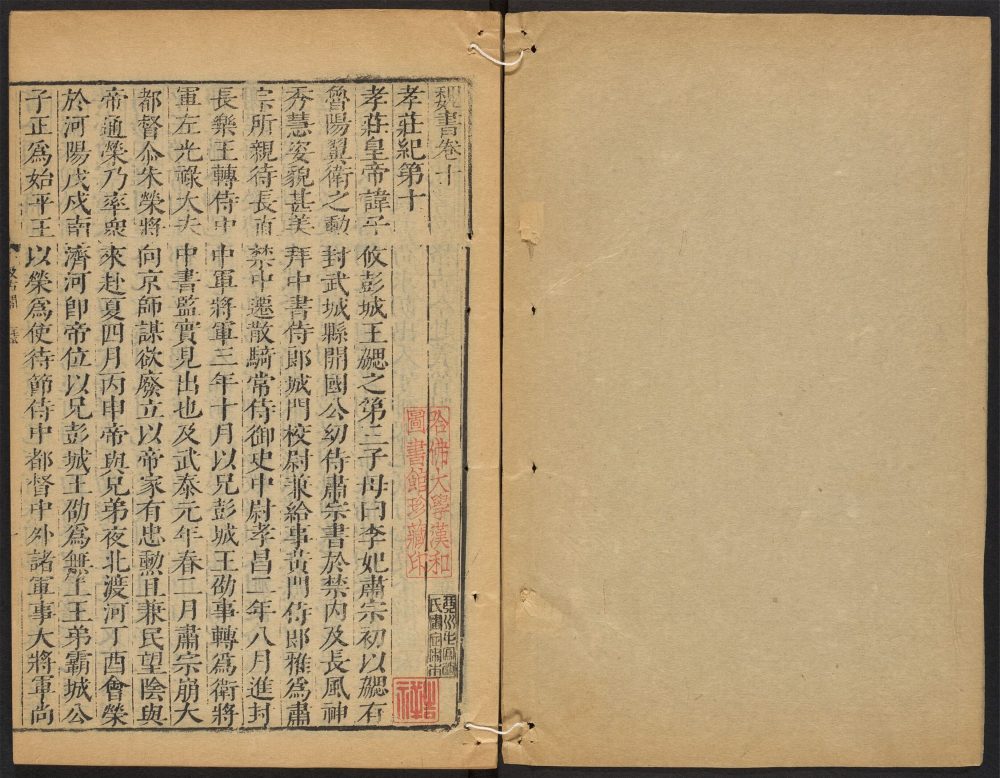 魏書卷十
孝莊紀第十
孝莊皇帝諱子攸彭城王勰之第三子母曰李妃肅宗初以勰有
魯陽翼衛之勳封武城縣開國公幼侍肅宗書於禁內及長風神
秀慧姿貌甚美拜中書侍郎城門校尉兼給事黃門侍郎雅爲肅
宗所親待長直禁中遷散騎常侍御史中尉孝昌二年八月進封
長樂王轉侍中中軍將軍三年十月以兄彭城王劭事轉爲衛將
軍左光祿大夫中書監實見出也及武泰元年春二月肅宗崩大
都督尒朱榮將向京師謀欲廢立以帝家有忠勳且兼民望陰與
帝通榮乃率衆來赴夏四月丙申帝與兄弟夜北渡河丁酉會榮
於河陽戊戌南濟河卽帝位以兄彭城王劭爲無上王弟霸城公
子正爲始平王以榮爲使持節侍中都督中外諸軍事大將軍尚
哈佛大學漢和
圖書館珍藏印